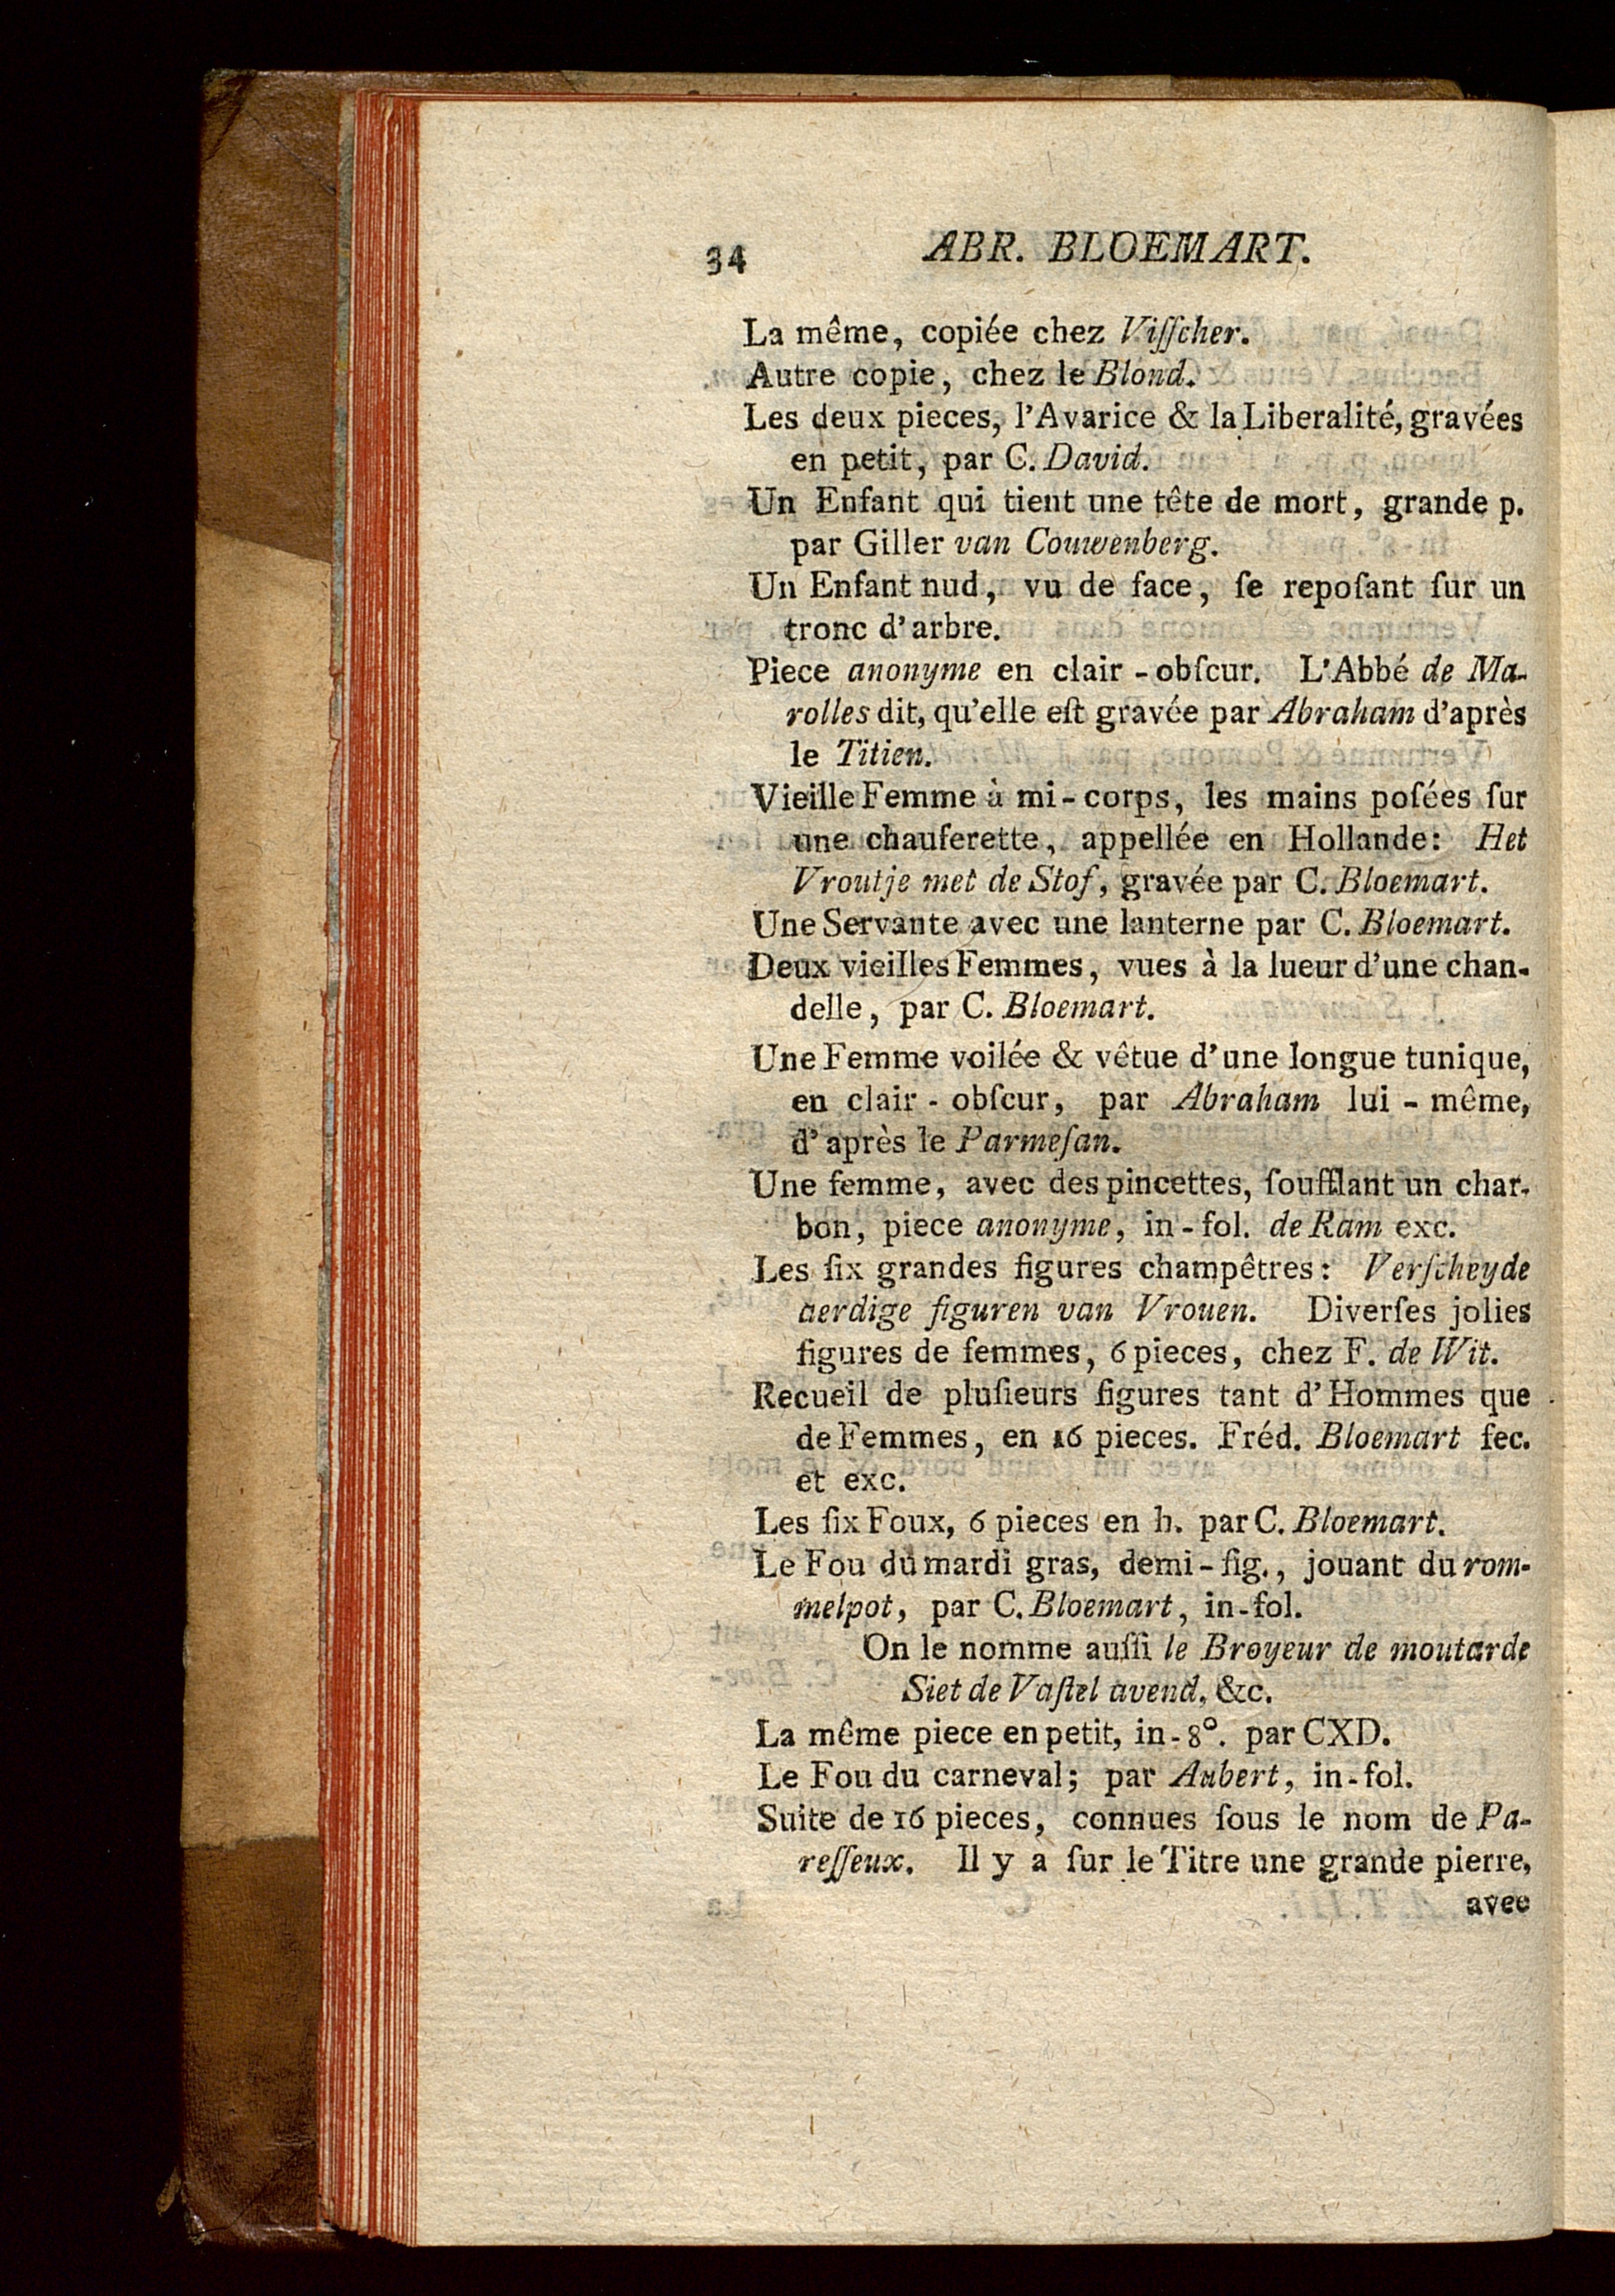 34 ABR. BLOEMART.
La même, copiée chez Viſſcher.
Autre copie, chez le Blond.
Les deux pieces, l'Avarice & la Liberalité, gravées
en petit, par C. David.
Un Enfant qui tient une tête de mort, grande p.
par Giller van Couwenberg.
Un Enfant nud, vu de face, ſe repoſant ſur un
tronc d'arbre.
Piece anonyme en clair-obſcur. L'Abbé de Ma-
rolles dit, qu'elle eſt gravée par Abraham d'après
le Titien.
Vieille Femme à mi-corps, les mains poſées ſur
une chauferette, appellée en Hollande: Het
Vroutje met de Stof, gravée par C. Bloemart.
Une Servante avec une lanterne par C. Bloemart.
Deux vieilles Femmes, vues à la lueur d'une chan-
delle, par C. Bloemart.
Une Femme voilée & vêtue d'une longue tunique,
en clair-obſcur, par Abraham lui-même,
d'après le Parmeſan.
Une femme, avec des pincettes, ſoufflant un char-
bon, piece anonyme, in-fol. de Ram exc.
Les ſix grandes figures champêtres: Verſcheyde
aerdige figuren van Vrouen. Diverſes jolies
figures de femmes, 6 pieces, chez F. de Wit.
Recueil de pluſieurs figures tant d'Hommes que
de Femmes, en 16 pieces. Fréd. Bloemart fec.
et exc.
Les ſix Foux, 6 pieces en h. par C. Bloemart.
Le Fou du mardi gras, demi-fig., jouant du rom-
melpot, par C. Bloemart, in-fol.
On le nomme auſſi le Broyeur de moutarde
Siet de Vaſtel avend, &c.
La même piece en petit, in-8°. par CXD.
Le Fou du carneval; par Aubert, in-fol.
Suite de 16 pieces, connues ſous le nom de Pa-
reſſeux. Il y a ſur le Titre une grande pierre,
avec